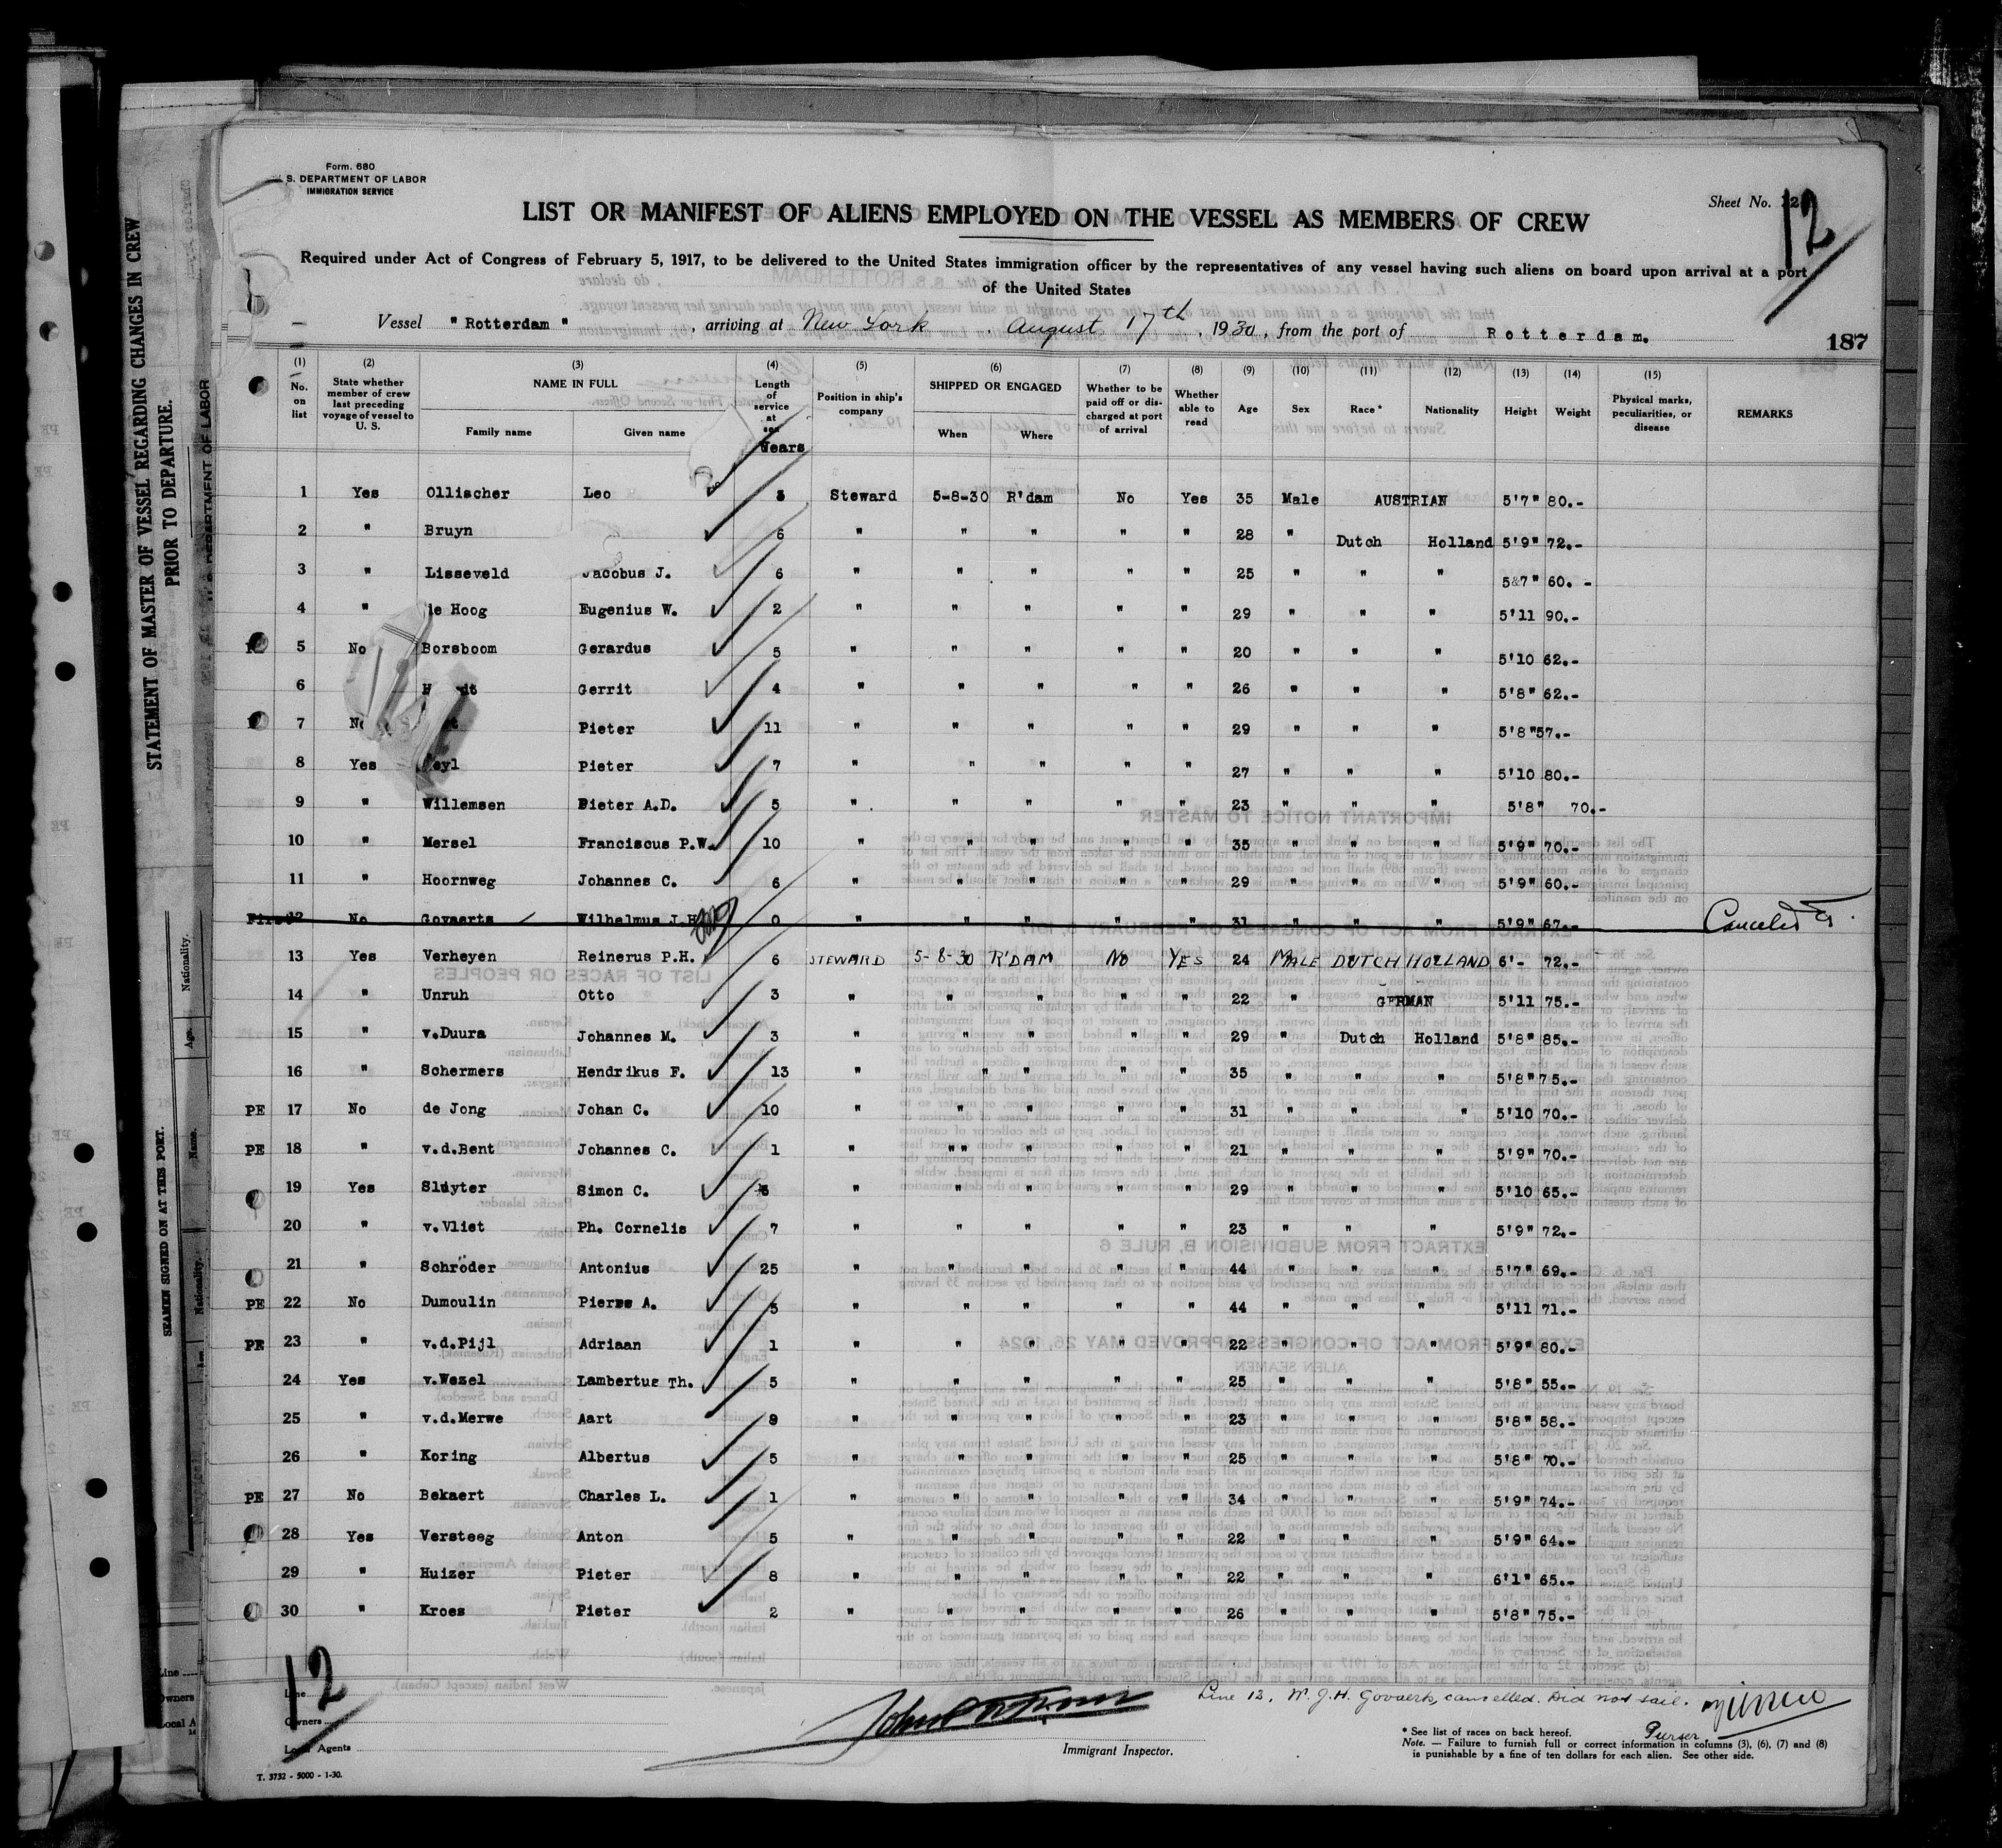 Form. 680
S. DEPARTMENT OF LABOR
IMMIGRATION SERVICE
Sheet No.
12
LIST OR MANIFEST OF ALIENS EMPLOYED ON THE VESSEL AS MEMBERS OF CREW
Required under Act of Congress of February 5, 1917, to be delivered to the United States immigration officer by the representatives of any vessel having such aliens on board upon arrival at a port
of the United States
Vessel " Rotterdam " , arriving at New York , August 17th , 1930 , from the port of Rotterdam.
187
(1) No. on list (2) State whether member of crew last preceding voyage of vessel to U. S. (3) NAME IN FULL Family name Given name (4) Length of service at sea Years (5) Position in ship's company (6) SHIPPED OR ENGAGED When Where (7) Whether to be paid off or discharged at port of arrival (8) Whether able to read (9) Age (10) Sex (11) Race* (12) Nationality (13) Height (14) Weight (15) Physical marks, peculiarities, or disease REMARKS
1 Yes Ollischer Leo Steward 5-8-30 R'dam No Yes 35 Male AUSTRIAN 5'7" 80.-
2 " Bruyn 6 " " " " " 28 " Dutch Holland 5'9" 72.-
3 " Lisseveld Jacobus J. 6 " " " " " 25 " " " 5&7" 60. -
4 " de Hoog Eugenius W. 2 " " " " " 29 " " " 5'11 90.-
5 No Borsboom Gerardus 5 " " " " " 20 " " " 5'10 62.-
6 Gerrit 4 " " " " " 26 " " " 5'8" 62.-
7 No Pieter 11 " " " " " 29 " " " 5'8"57.-
8 Yes Pieter 7 " " " " " 27 " " " 5'10 80.-
9 " Willemsen Pieter A.D. 5 " " " " " 23 " " " 5'8" 70.-
10 " Mersel Franciscus P.W. 10 " " " " " 35 " " " 5'9" 70.-
11 " Hoornweg Johannes C. 6 " " " " " 29 " " " 5'9" 60.-
First 12 No Govaerts Wilhelmus J.H. 0 " " " " " 31 " " " 5'9" 67.- Canceled
13 Yes Verheyen Reinerus P.H. 6 STEWARD 5-8-30 R'DAM No YES 24 MALE DUTCH HOLLAND 6'- 72.-
14 " Unruh Otto 3 " " " " " 22 " GERMAN 5'11 75.-
15 " v.Duura Johannes M. 3 " " " " " 29 " Dutch Holland 5'8" 85.-
16 " Schermers Hendrikus F. 13 " " " " " 35 " " " 5'8" 75.-
PE 17 No de Jong Johan C. 10 " " " " " 31 " " " 5'10 70.-
PE 18 " v.d.Bent Johannes C. 1 " "" " " " 21 " " " 5'9" 70.-
19 Yes Sluyter Simon C. " " " " " 29 " " " 5'10 65.-
20 " v.Vliet Ph. Cornelis 7 " " " " " 23 " " " 5'9" 72.-
21 " Schröder Antonius 25 " " " " " 44 " " " 5'7" 69.-
PE 22 No Dumoulin Pierre A. 5 " " " " " 44 " " " 5'11 71.-
PE 23 " v.d.Pijl Adriaan 1 " " " " " 22 " " " 5'9" 80.-
24 Yes v.Wezel Lambertus Th. 5 " " " " " 25 " " " 5'8" 55.-
25 " v.d.Merwe Aart " " " " " 23 " " " 5'8" 58.-
26 " Koring Albertus 5 " " " " " 25 " " " 5'8" 70.-
PE 27 No Bekaert Charles L. 1 " " " " " 34 " " " 5'9" 74.-
28 Yes Versteeg Anton 5 " " " " " 22 " " " 5'9" 64.-
29 " Huizer Pieter 8 " " " " " 22 " " " 6'1" 65.-
30 " Kroes Pieter 2 " " " " " 26 " " " 5'8" 75.-
12
Line
Owners
Local Agents
T. 3732 - 5000 - 1-30.
Immigrant Inspector.
Line 12, W. J.H. Govaerts, cancelled. Did not sail.
Purser
* See list of races on back hereof.
Note. — Failure to furnish full or correct information in columns (3), (6), (7) and (8)
is punishable by a fine of ten dollars for each alien. See other side.
STATEMENT OF MASTER OF VESSEL REGARDING CHANGES IN CREW
PRIOR TO DEPARTURE.
DEPARTMENT OF LABOR
SEAMEN SIGNED ON AT THIS PORT.
Nationality.
Age.
Name.
Nationality.
Line
Owners
Local A